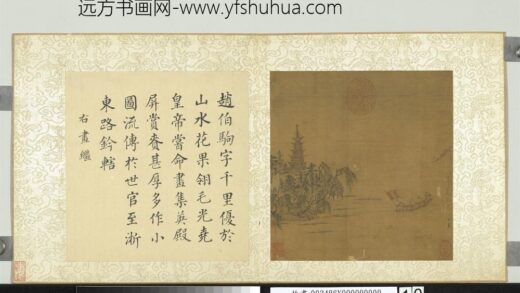 远方书画网-www.yfshuhua.com
趙伯駒字千里優於
山水花果翎毛光堯
皇帝嘗命畫集英殿
屏賞賚甚厚多作小
圖流傳於世官至淅
東路鈐轄
右畫繼